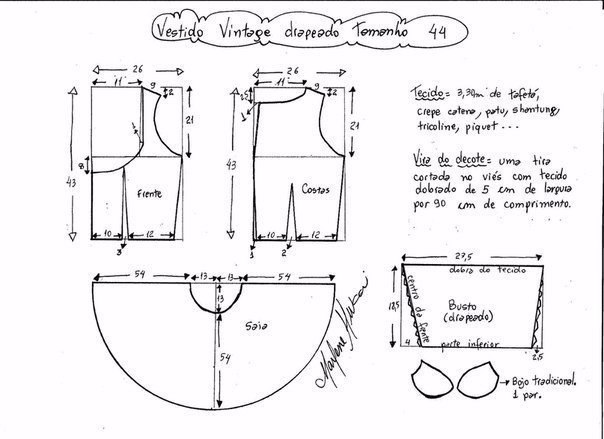 Vestido Vintage drapeado Tamanho 44
26
11
9
2
21
43
8
Frente
10
12
3
26
11
9
2
21
43
Costas
10
12
1
2
Tecido = 3,30m de tafetá,
crepe catena, patu, shantung,
tricoline, piquet ...
Vira do decote = uma tira
cortada no viés com tecido
dobrado de 5 cm de largura
por 90 cm de comprimento.
54
13
13
54
13
Saia
54
Marlene Mukai
27,5
dobra do tecido
centro da frente
Busto
(drapeado)
parte inferior
4
2,5
Bojo tradicional.
1 par.